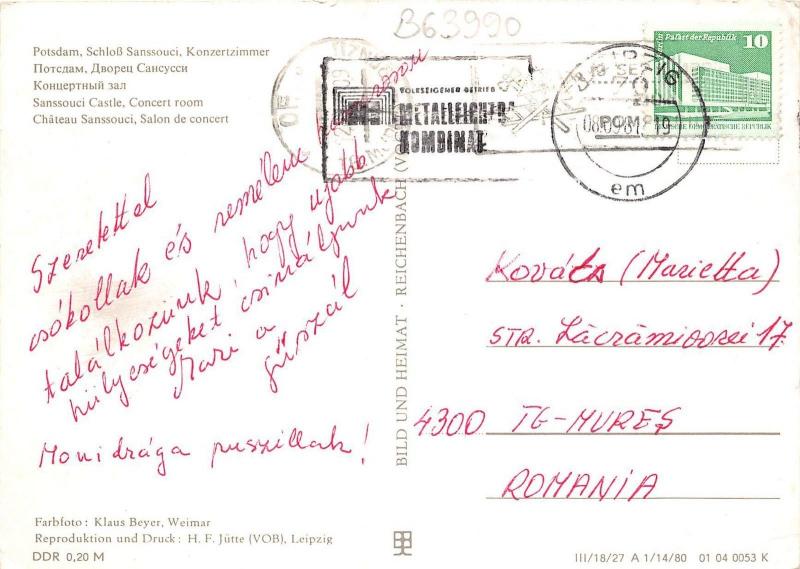 B63990
Potsdam, Schloß Sanssouci, Konzertzimmer
Потсдам, Дворец Сансусси
Концертный зал
Sanssouci Castle, Concert room
Château Sanssouci, Salon de concert
VOLKSEIGENER BETRIEB
METALLEICHTBA
KOMBINAT
Palast der Republik 10
08.09.81
em
Szeretettel
csókollak és remélem hamarosan
találkozunk, hogy ujabb
hülyeségeket csináljunk
Mari a
gúszál
Moni drága puszillak!
BILD UND HEIMAT · REICHENBACH (VOGTL)
Kovács (Marietta)
STR. Lăcrămioarei 17
4300 TG-MUREȘ
ROMANIA
Farbfoto: Klaus Beyer, Weimar
Reproduktion und Druck: H. F. Jütte (VOB), Leipzig
DDR 0,20 M
III/18/27 A 1/14/80 01 04 0053 K